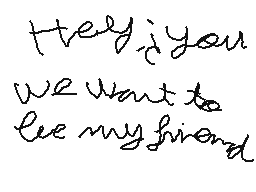 Hey, you
we want to
be my friend